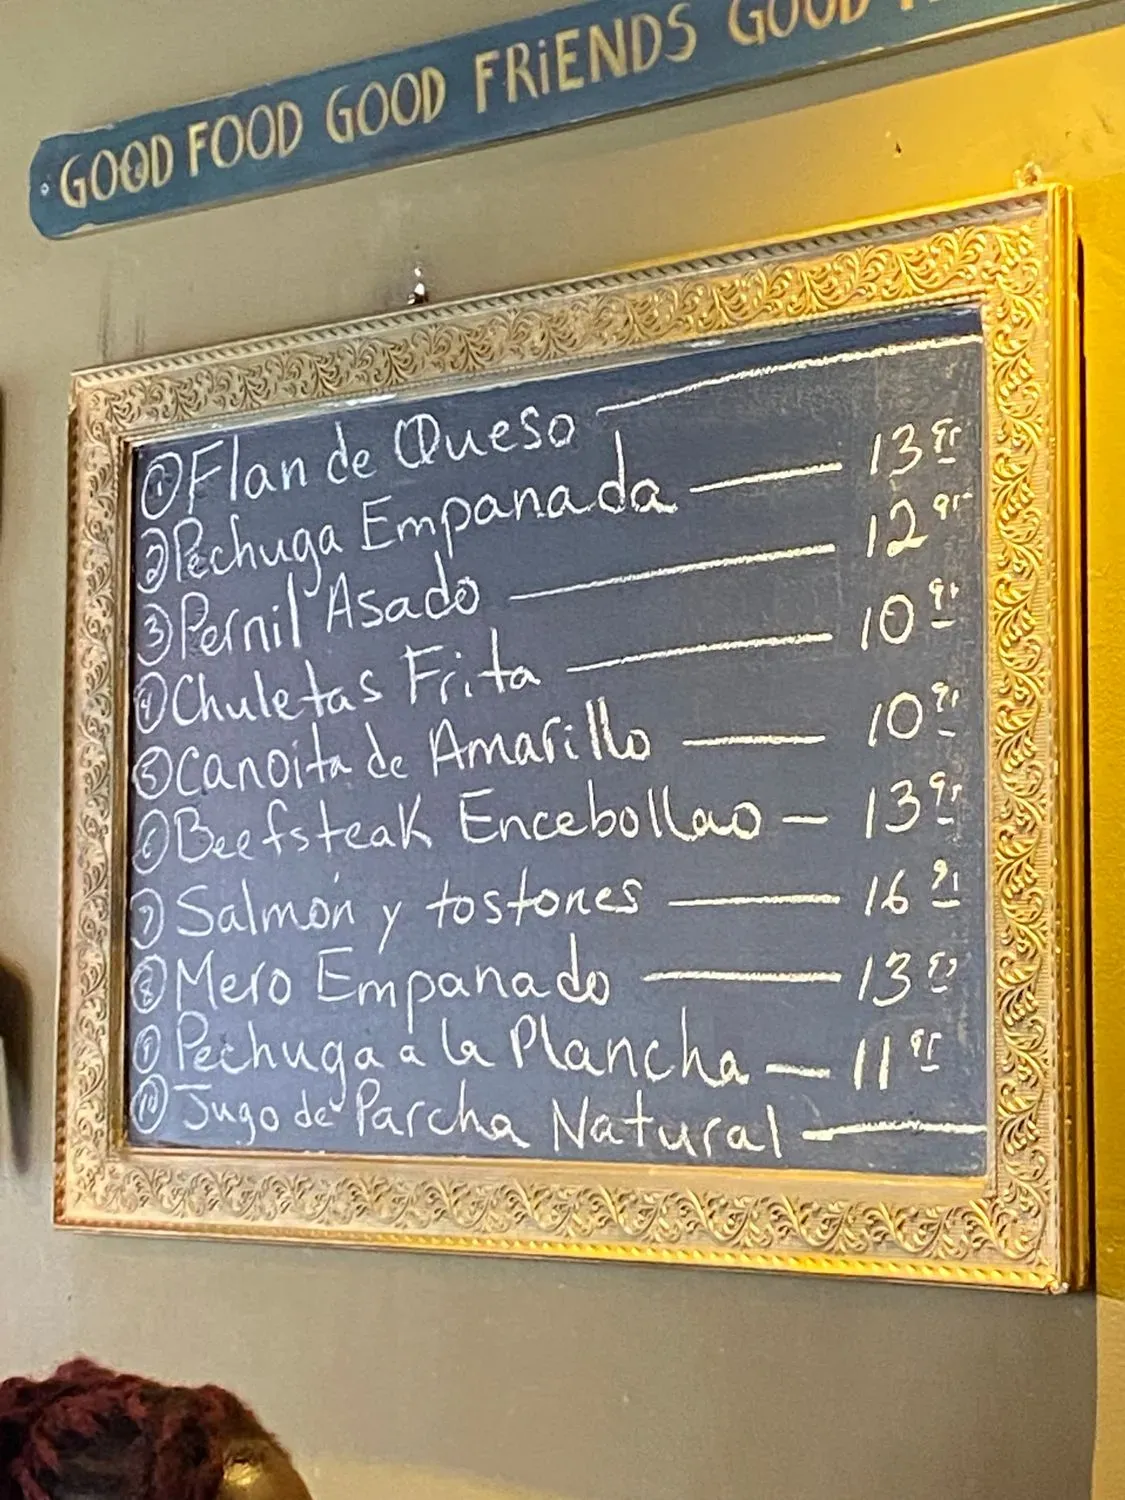 GOOD FOOD GOOD FRiENDS GOOD
① Flan de Queso
② Pechuga Empanada — 13 95
③ Pernil Asado — 12 95
④ Chuletas Frita — 10 95
⑤ Canoita de Amarillo — 10 95
⑥ Beefsteak Encebollao — 13 95
⑦ Salmón y tostones — 16 95
⑧ Mero Empanado — 13 95
⑨ Pechuga a la Plancha — 11 95
⑩ Jugo de Parcha Natural —